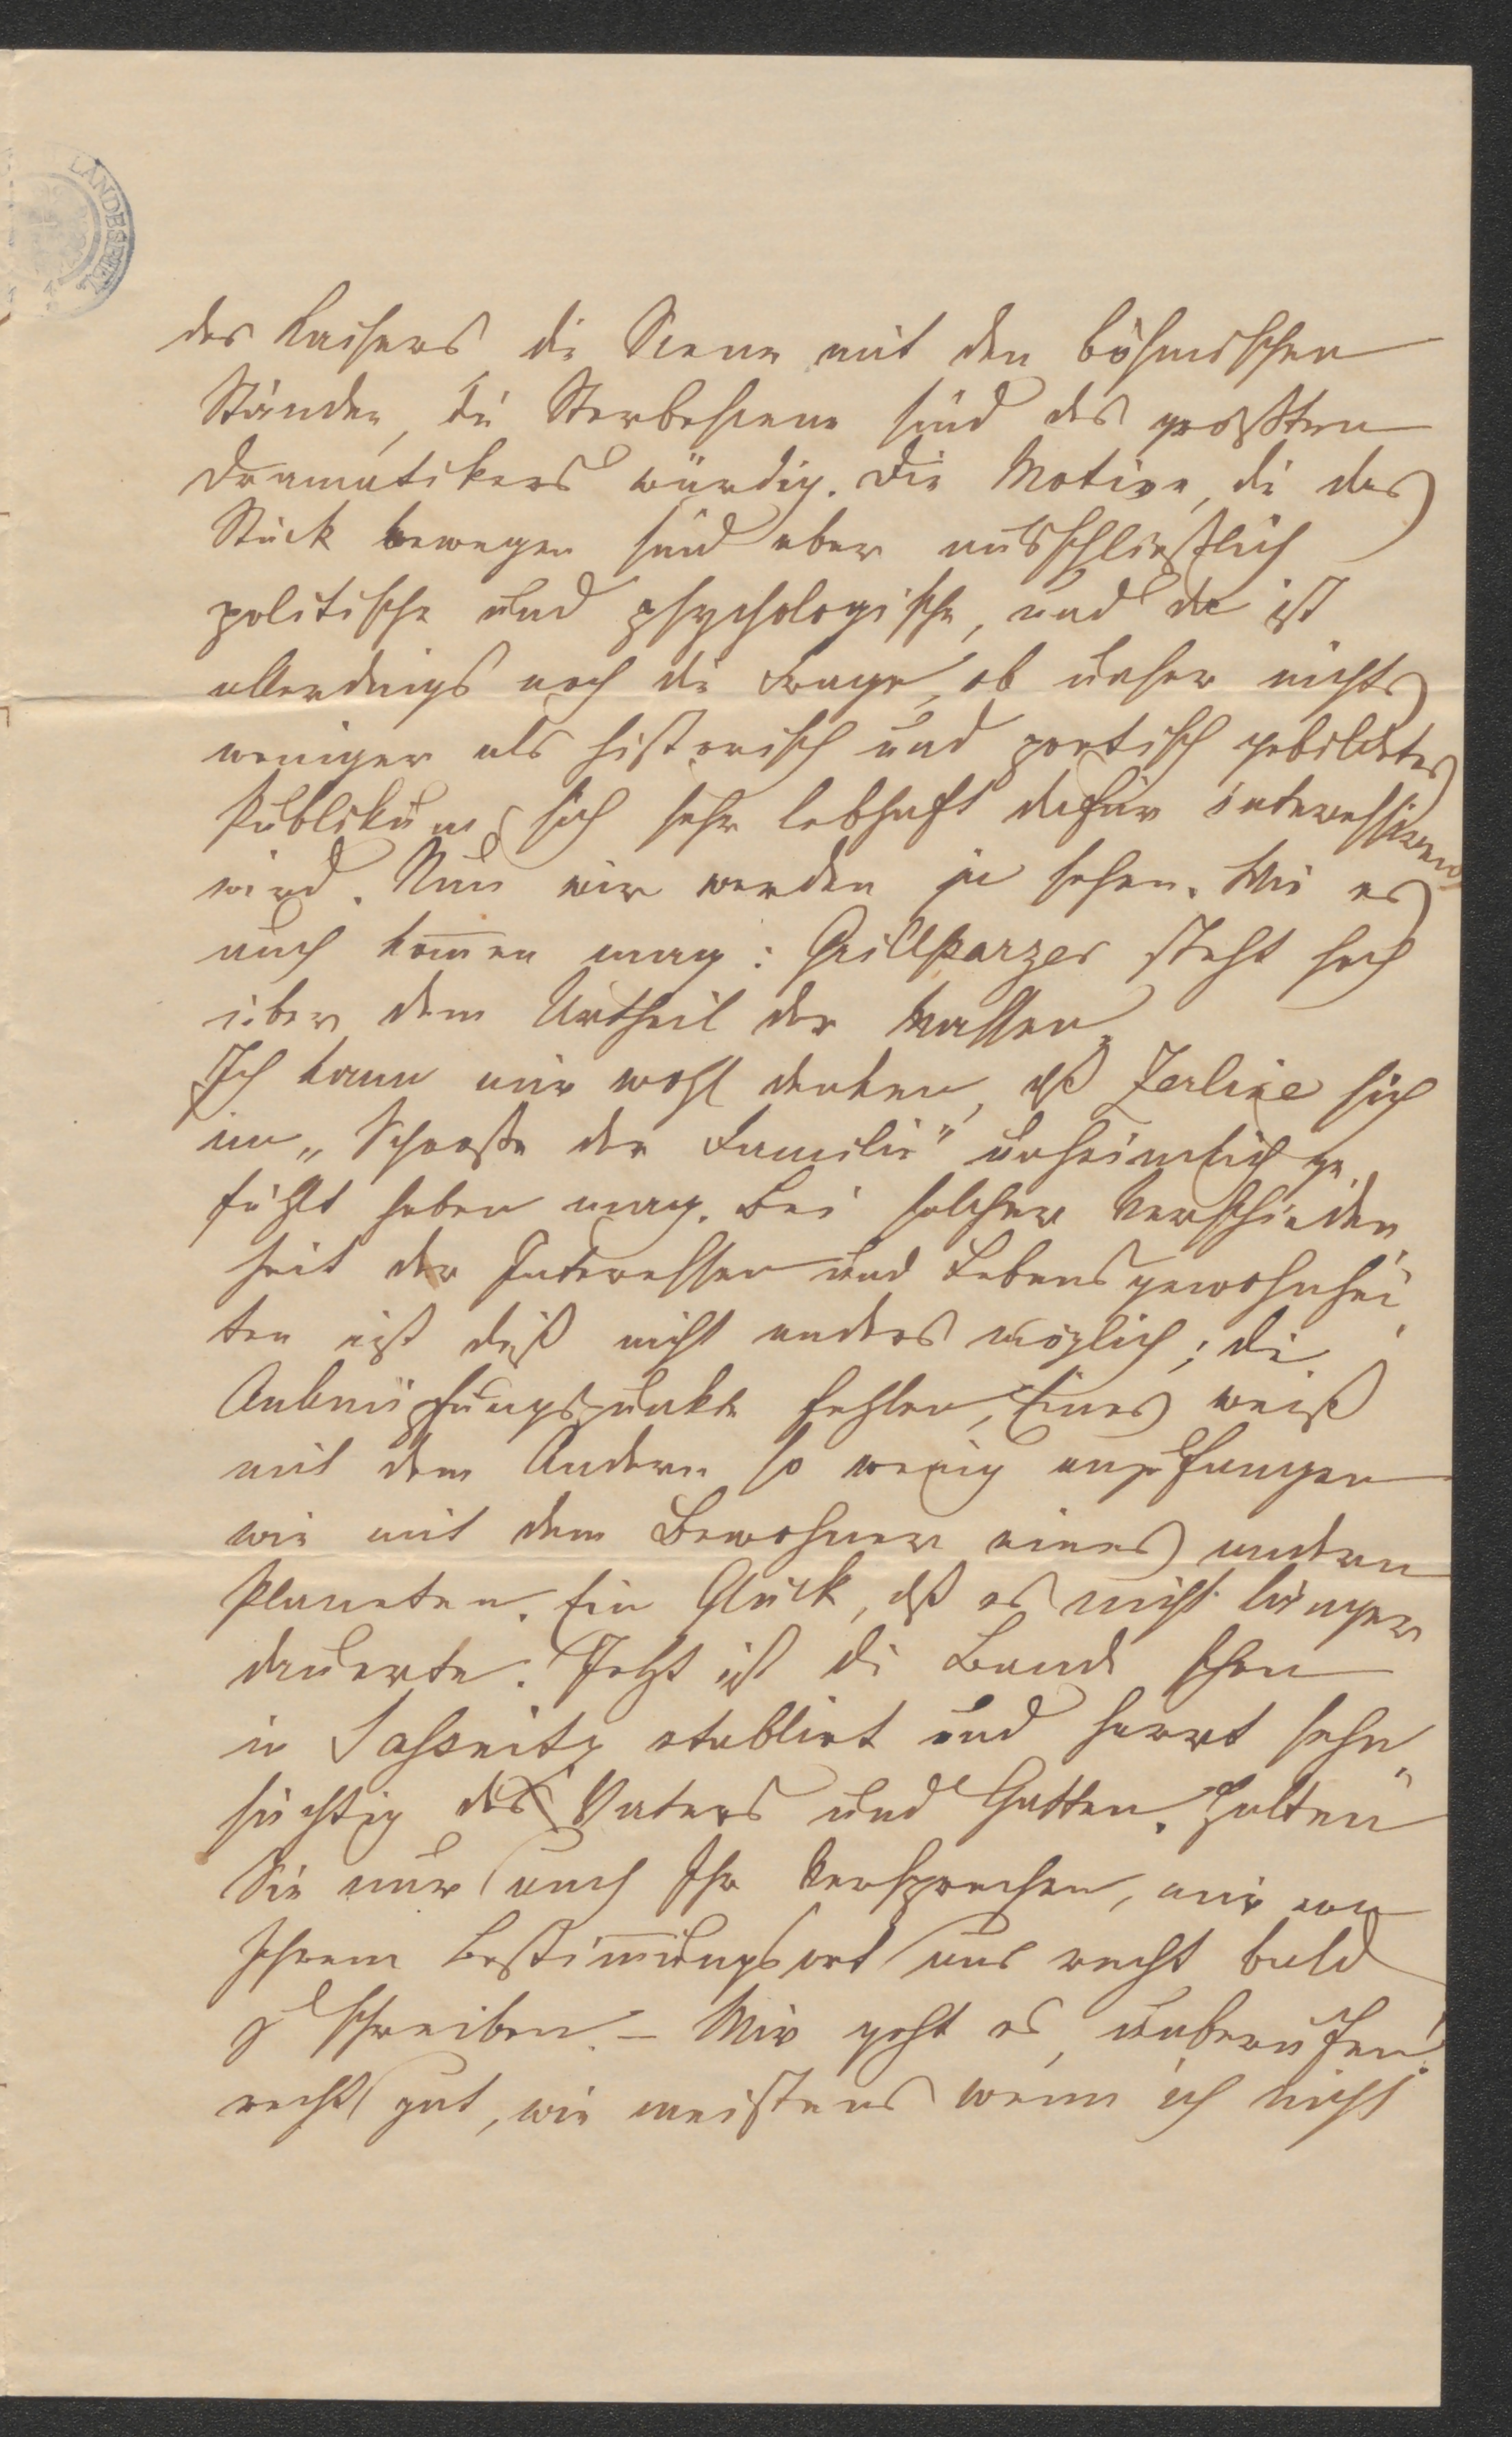 LANDESBIBL
des Kaisers, die Scene mit den böhmischen
Ständen, die Sterbescene sind des größten
Dramatikers würdig. Die Motive, die das
Stück bewegen sind aber ausschließlich
politische und psychologische, und da ist
allerdings noch die Frage, ob unser nichts
weniger als historisch und poetisch gebildetes
Publikum sich sehr lebhaft dafür interessiren
wird. Nun wir werden ja sehen. Wie es
auch kom̅en mag: Grillparzer steht hoch
über dem Urtheil der Massen.
Ich kann mir wohl denken, dß Zerline sich
im „Schooße der Familie" unheimlich ge
fühlt haben mag. Bei solcher Verschieden
heit der Interessen und Lebensgewohnhei
ten ist dieß nicht anders möglich; die
Anknüpfungspunkte fehlen, Eines weiß
mit dem Andern so wenig anzufangen
wie mit dem Bewohner eines andern
Planeten. Ein Glück, dß es nicht länger
dauerte. Jetzt ist die Bande schon
in Sassnitz etablirt und harrt sehn
süchtig des Vaters und Gatten. Halten
Sie nur auch Ihr Versprechen, mir von
Ihrem Bestim̅ungsort aus recht bald
z schreiben. – Mir geht es, unberufen!
recht gut, wie meistens wenn ich nicht